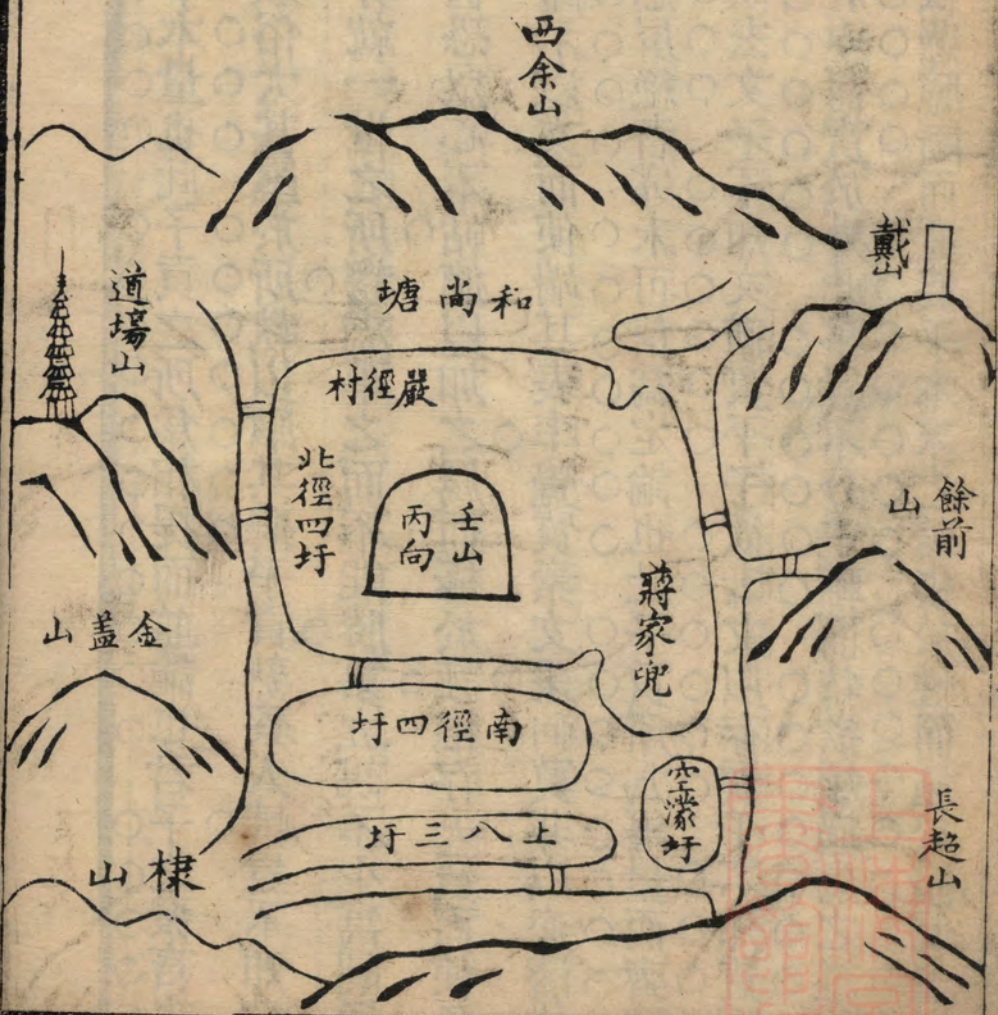 西余山
戴山
道場山
和尚塘
嚴徑村
北徑四圩
壬山
丙向
餘前
山
蔣家兜
金蓋山
南徑四圩
空濛圩
上八三圩
長超山
棣山